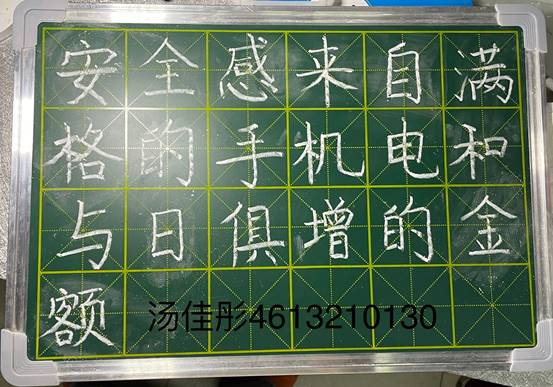 安全感来自满
格的手机电和
与日俱增的金
额
汤佳彤4613210130